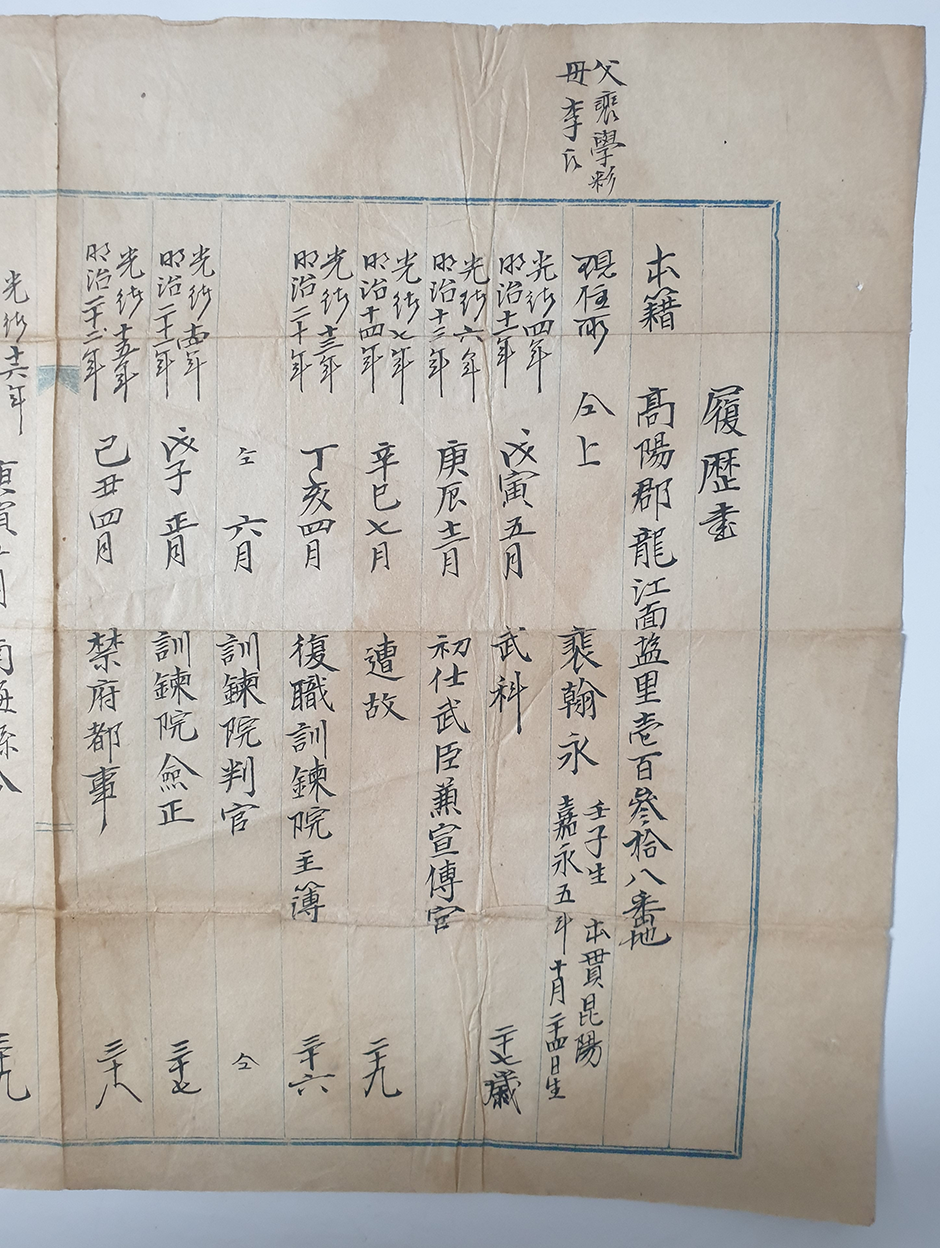 父裵學彩
母李氏
履歷書
本籍 高陽郡龍江面盐里壱百參拾八番地
現住所 仝上 裵翰永 壬子生 本貫昆陽
嘉永五年十月二十四日生
光緖四年
明治十一年 戊寅五月 武科 二十七歲
光緖六年
明治十三年 庚辰十二月 初仕武臣兼宣傳官
光緖七年
明治十四年 辛巳七月 遭故 二十九
光緖十三年
明治二十年 丁亥四月 復職訓鍊院主簿 三十六
仝 六月 訓鍊院判官 仝
光緖十四年
明治二十一年 戊子正月 訓鍊院僉正 三十七
光緖十五年
明治二十二年 己丑四月 禁府都事 三十八
光緖十六年
庚寅 月 南海縣令 三十九